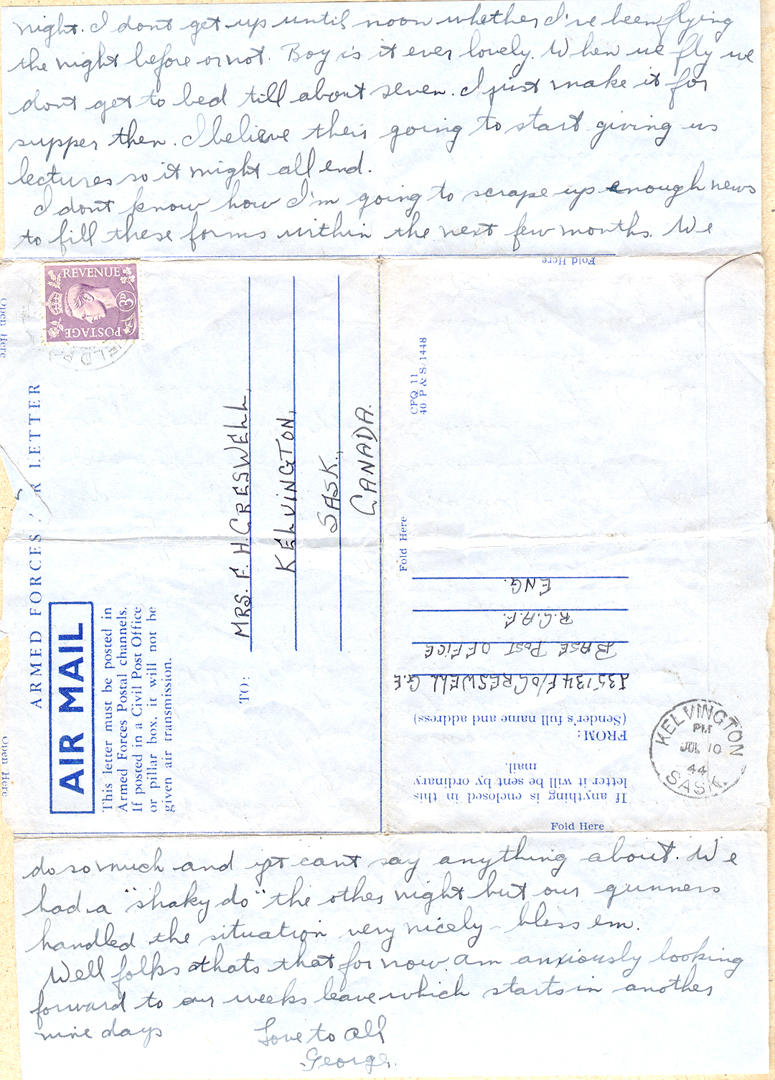 night. I dont get up until noon whether I've been flying
the night before or not. Boy is it ever lovely. When we fly we
dont get to bed till about seven. I just make it for
supper then. I believe their going to start giving us
lectures so it might all end.
I dont know how I'm going to scrape up enough news
to fill these forms within the next few months. We
Open Here
REVENUE
3D
POSTAGE
FIELD P
ARMED FORCES AIR LETTER
AIR MAIL
This letter must be posted in
Armed Forces Postal channels.
If posted in a Civil Post Office
or pillar box, it will not be
given air transmission.
Open Here
TO:
MRS. F. H. CRESWELL,
KELVINGTON,
SASK.,
CANADA.
Fold Here
CFQ 11
40 P & S. 1448
Fold Here
If anything is enclosed in this
letter it will be sent by ordinary
mail.
FROM:
(Sender's full name and address)
J35134 F/O CRESWELL G.E.
BASE POST OFFICE
R.C.A.F.
ENG.
KELVINGTON
PM
JUL 10
44
SASK.
Fold Here
do so much and yet cant say anything about. We
had a "shaky do" the other night but our gunners
handled the situation very nicely - bless em.
Well folks thats that for now. am anxiously looking
forward to our weeks leave which starts in another
nine days
Love to all
George.